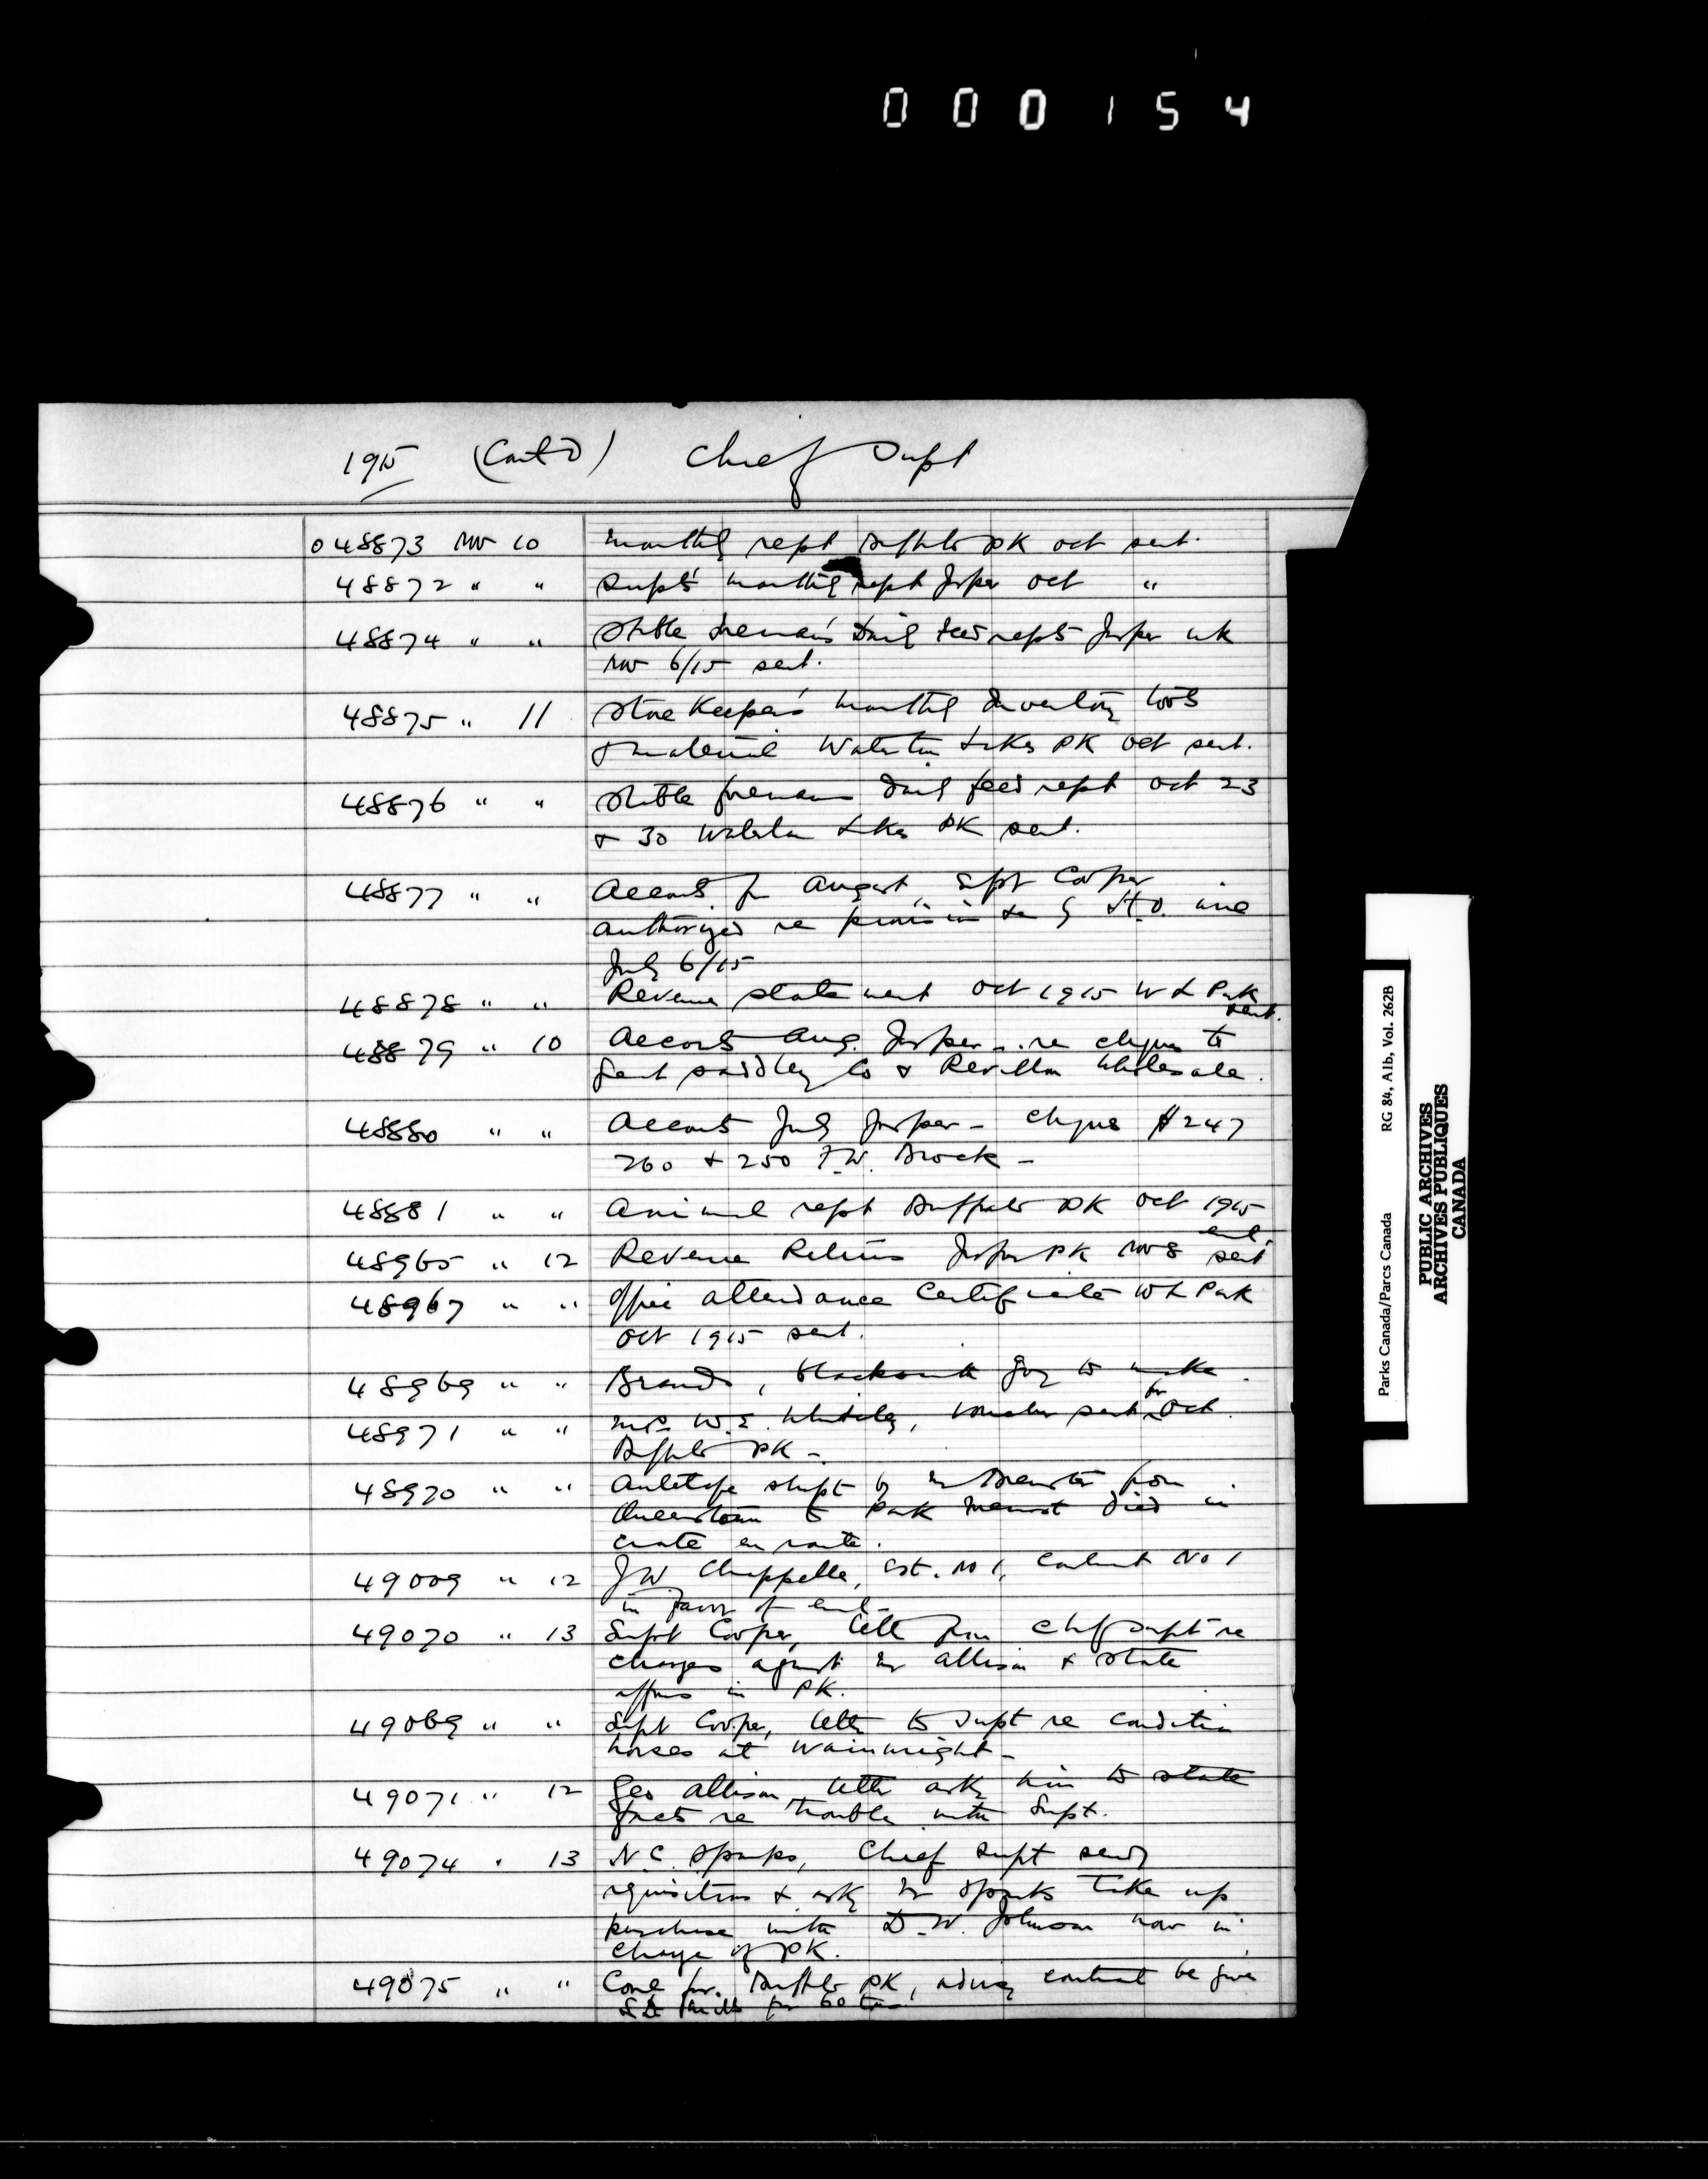 000154
1915 (Cont'd) Chief Supt
048873 Nov 10 monthly rept Buffalo PK Oct sent.
48872 " " Supt's monthly rept Jasper Oct "
48874 " " Stable foreman's Daily feed repts Jasper wk
Nov 6/15 sent.
48875 " 11 Store Keeper's monthly Inventory tools
& material Waterton Lakes PK Oct sent.
48876 " " Stable foremans Daily feed rept Oct 23
& 30 Waterton Lakes PK sent.
48877 " " Accounts for August, Supt Cooper
authorized re H.O. wire
July 6/15
48878 " " Revenue statement Oct 1915 W L Park
sent.
48879 " 10 Accounts Aug. Jasper - re cheques to
Great Saddlery Co & Revillon Wholesale.
48880 " " Accounts July Jasper - cheques #247
260 & 250 F.W. Brock -
48881 " " Animal rept Buffalo PK Oct 1915
sent
48965 " 12 Revenue Returns Jasper PK Nov 8 sent
48967 " " Office attendance Certificate W L Park
Oct 1915 sent.
48969 " " Brands, blacksmith going to make.
48971 " " W.E. voucher sent for Oct.
Buffalo PK -
48970 " " Antelope shipt by Mr Brewster from
to Park died in
crate en route.
49009 " 12 JW Chappelle, est. No 1, contract No 1
in favor of
49070 " 13 Supt Cooper, letter from Chief Supt re
charges against Mr Allison & state
affairs in PK.
49069 " " Supt Cooper, letter to Supt re condition
horses at Wainwright -
49071 " 12 Geo Allison letter askg him to state
facts re trouble with Supt.
49074 " 13 N.C. Sparks, Chief Supt sendg
requisitions & askg Mr Sparks take up
purchase with D.W. Johnson now in
charge of PK.
49075 " " Coal for Buffalo PK, advisg contract be given
for 60 tons
Parks Canada/Parcs Canada RG 84, Alb, Vol. 262B
PUBLIC ARCHIVES
ARCHIVES PUBLIQUES
CANADA